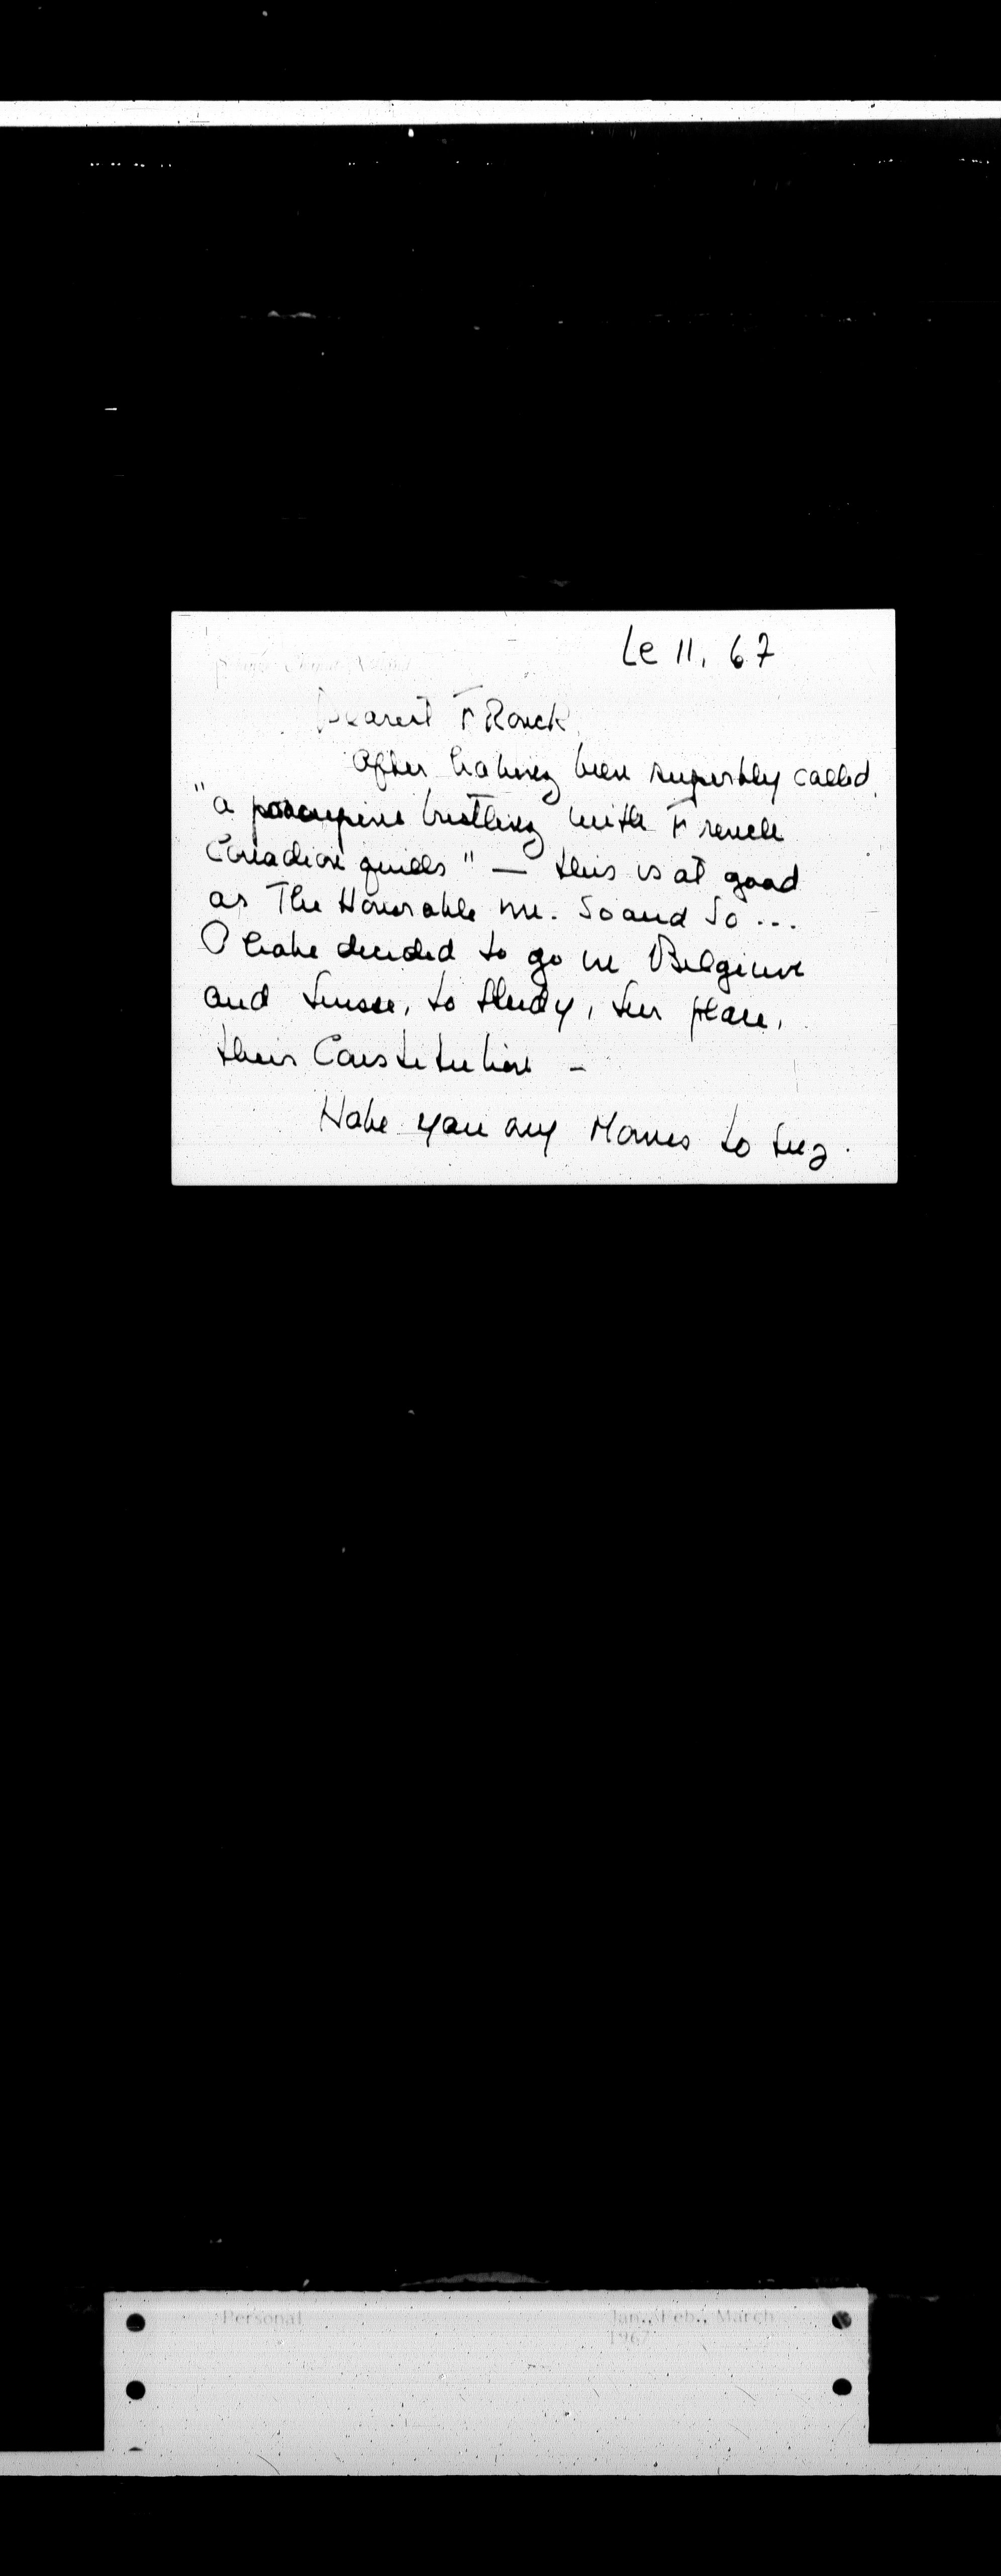 Le 11. 67
Dearest FRanck
After having been superbly called
"a porcupine bristling with French
Canadian quills" — this is at good
as The Honorable Mr. So and So ...
I have decided to go in Belgium
and Suisse, to Study, sur place,
their Constitution -
Have you any Names to sug.
Personal
Jan., Feb., March
1967